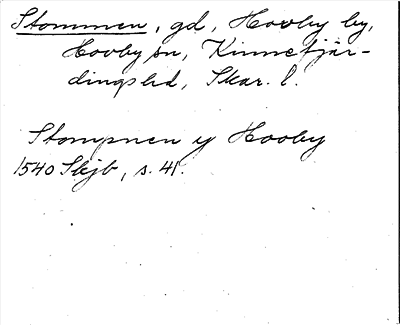 Stommen, gd, Hovby by,
Hovby sn, Kinnefjär-
dings hd, Skar. l.
Stompnen y Hooby
1540 Skjb, s. 41.